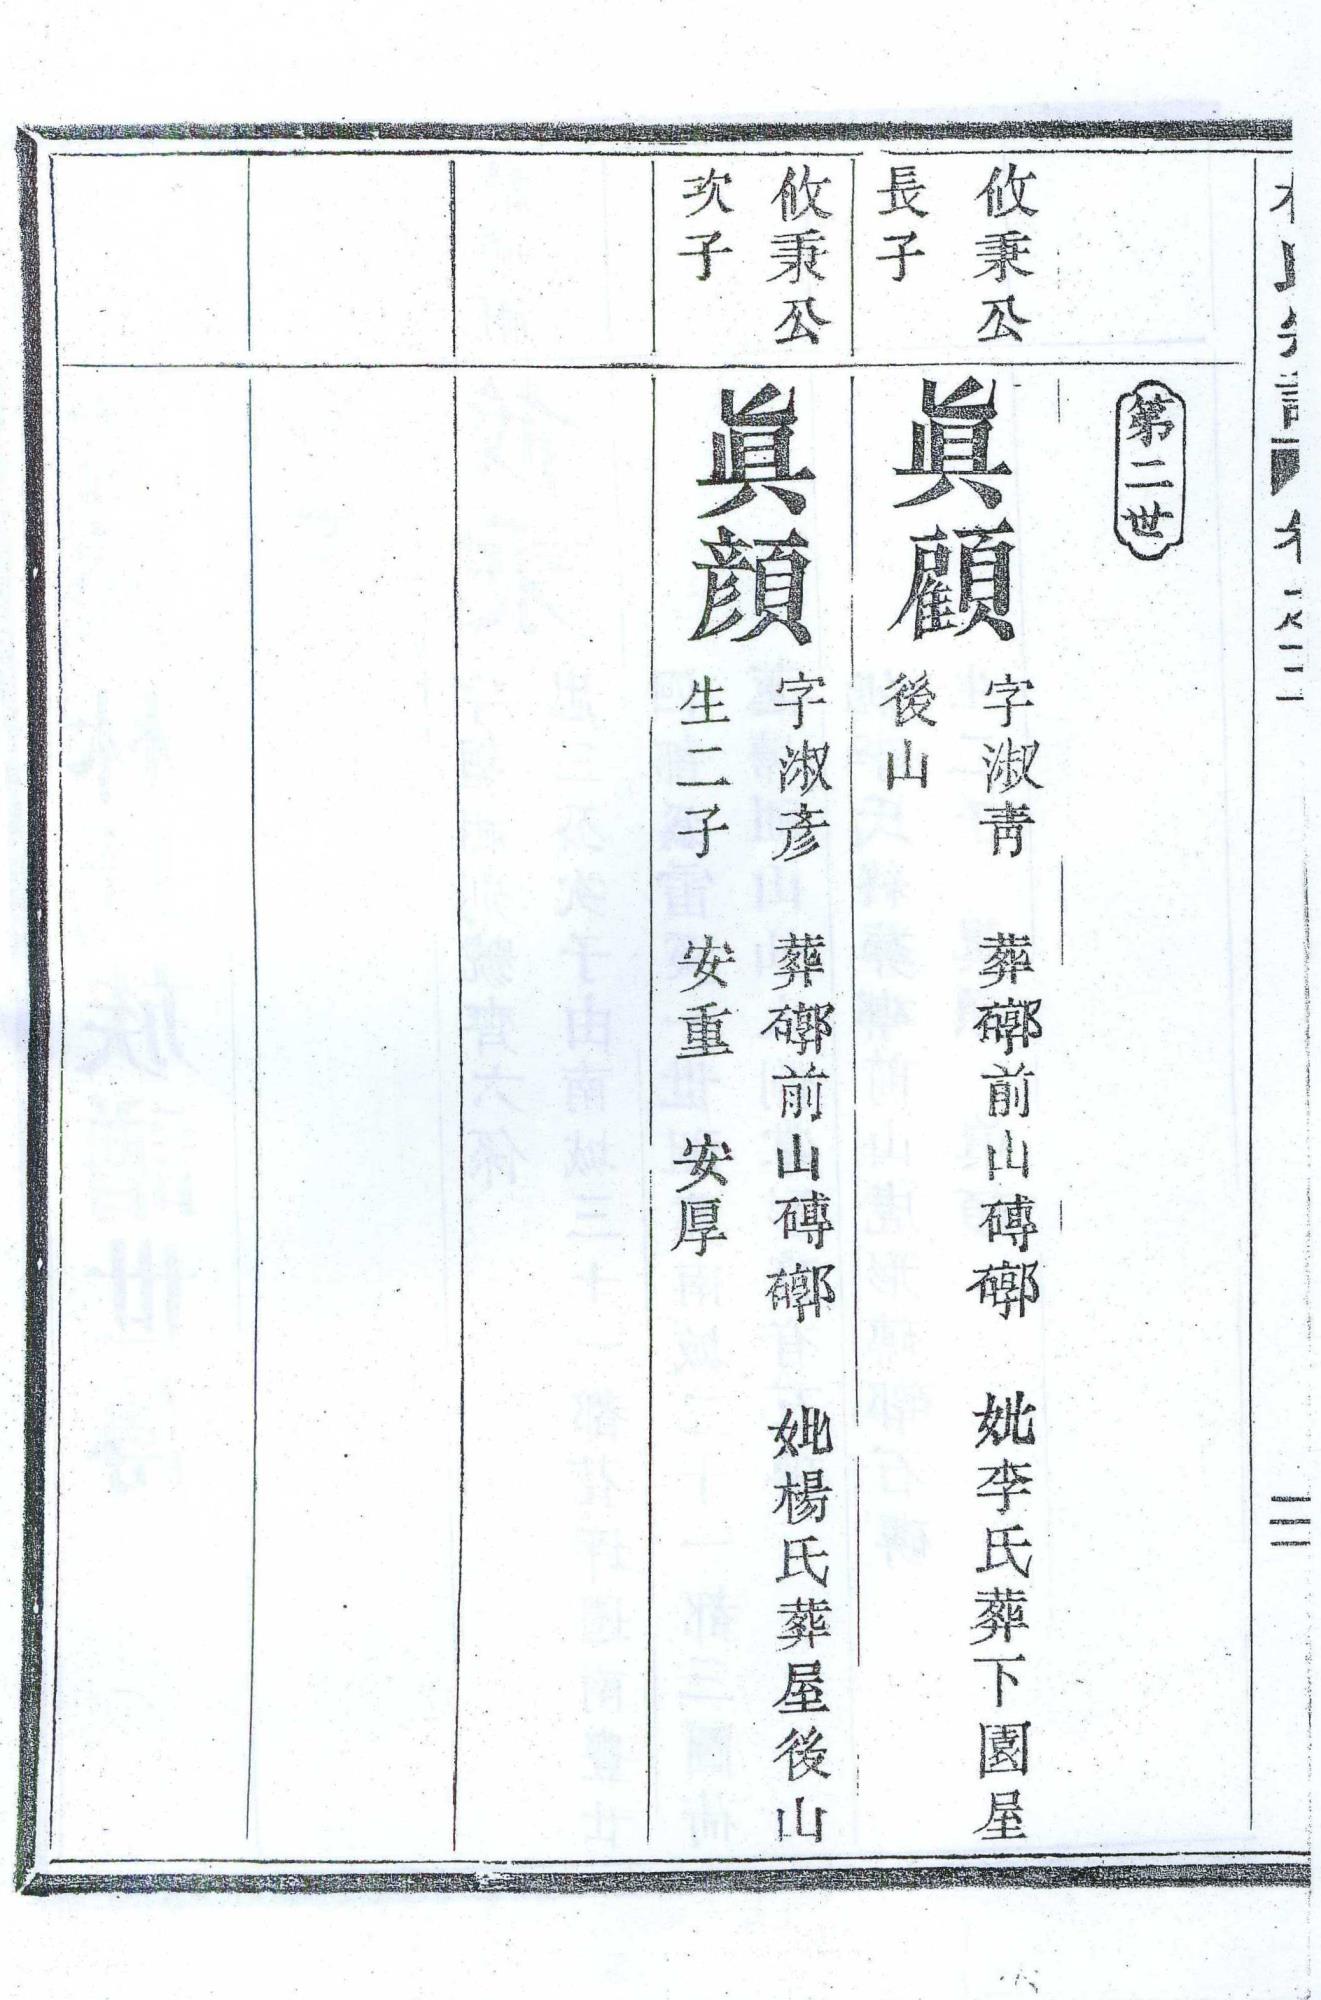 第二世
攸秉公
長子
眞顧
字淑靑 葬𥕏前山磚𥕏 妣李氏葬下園屋
後山
攸秉公
次子
眞顔
字淑彥 葬𥕏前山磚𥕏 妣楊氏葬屋後山
生二子 安重 安厚